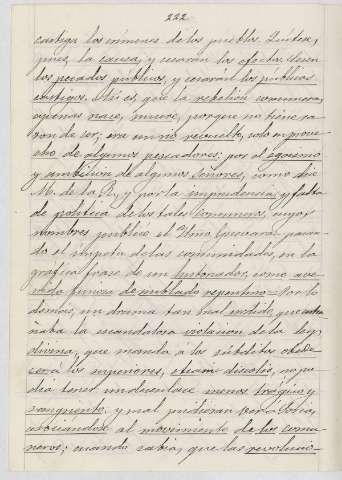 222
castiga los crimenes de los pueblos. Quitese,
pues, la causa, y cesarán los efectos. Cesen
los pecados públicos, y cesarán los públicos
castigos. Así es, que la rebelión comunera,
apenas nace, muere, porque no tiene ra
zon de ser; era un rio revuelto, solo en prove
cho de algunos pescadores; por el egoismo
y ambición de algunos Señores, como dice
M. de la y por la imprudencia y falta
de politica de los tales Comuneros, cuyos
nombres publicó el Ilmo. Guevara: pasan
do el impetu de las comunidades, en la
gráfica frase de un historiador, como ave
nida furiosa de nublado repentino. Por lo
demas, un drama tan mal urdido, que entra
ñaba la escandalosa violación de la ley
divina, que manda á los subditos obede
cer á los superiores, etiam discolis, no po
dia tener un desenlace menos trágico y
sangriento, y mal pudieran
asociandose al movimiento de los comu
neros; cuando sabia, que las revolucio-